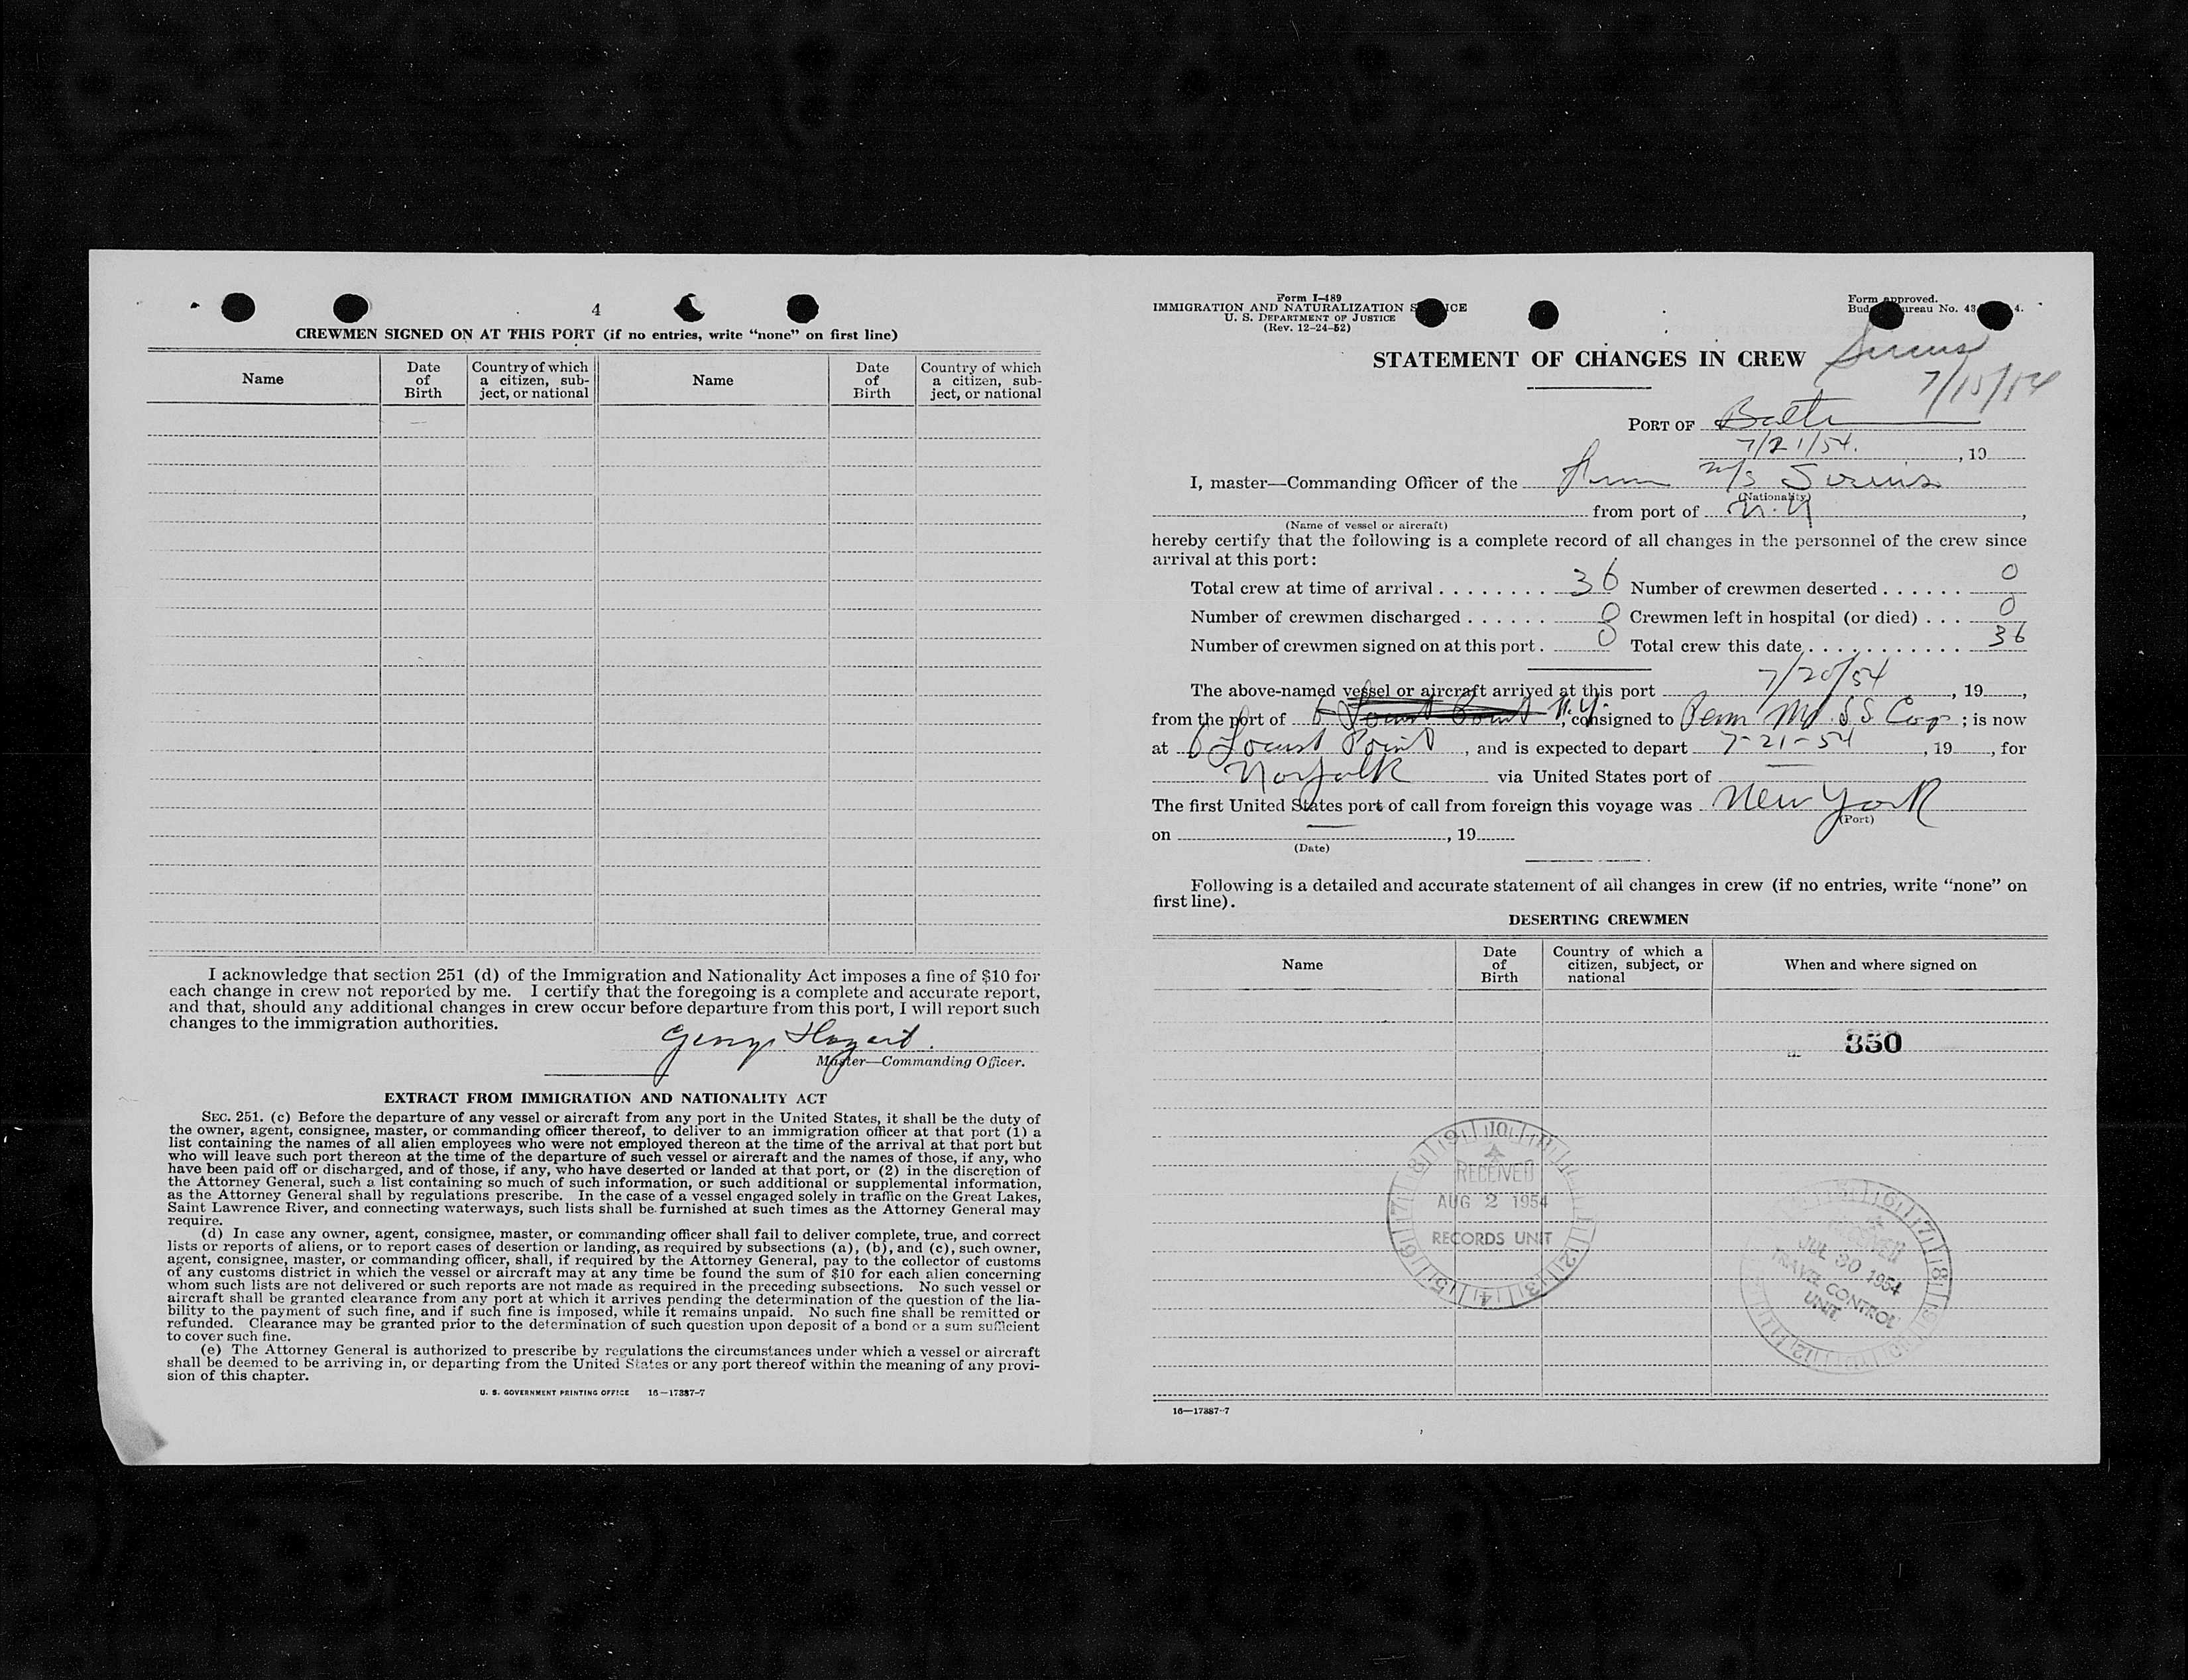 4
CREWMEN SIGNED ON AT THIS PORT (if no entries, write “none” on first line)
Name
Date of Birth
Country of which a citizen, sub-
ject, or national
Name
Date of Birth
Country of which a citizen, sub-
ject, or national
I acknowledge that section 251 (d) of the Immigration and Nationality Act imposes a fine of $10 for
each change in crew not reported by me. I certify that the foregoing is a complete and accurate report,
and that, should any additional changes in crew occur before departure from this port, I will report such
changes to the immigration authorities.
Master—Commanding Officer.
EXTRACT FROM IMMIGRATION AND NATIONALITY ACT
SEC. 251. (c) Before the departure of any vessel or aircraft from any port in the United States, it shall be the duty of
the owner, agent, consignee, master, or commanding officer thereof, to deliver to an immigration officer at that port (1) a
list containing the names of all alien employees who were not employed thereon at the time of the arrival at that port but
who will leave such port thereon at the time of the departure of such vessel or aircraft and the names of those, if any, who
have been paid off or discharged, and of those, if any, who have deserted or landed at that port, or (2) in the discretion of
the Attorney General, such a list containing so much of such information, or such additional or supplemental information,
as the Attorney General shall by regulations prescribe. In the case of a vessel engaged solely in traffic on the Great Lakes,
Saint Lawrence River, and connecting waterways, such lists shall be furnished at such times as the Attorney General may
require.
(d) In case any owner, agent, consignee, master, or commanding officer shall fail to deliver complete, true, and correct
lists or reports of aliens, or to report cases of desertion or landing, as required by subsections (a), (b), and (c), such owner,
agent, consignee, master, or commanding officer, shall, if required by the Attorney General, pay to the collector of customs
of any customs district in which the vessel or aircraft may at any time be found the sum of $10 for each alien concerning
whom such lists are not delivered or such reports are not made as required in the preceding subsections. No such vessel or
aircraft shall be granted clearance from any port at which it arrives pending the determination of the question of the lia-
bility to the payment of such fine, and if such fine is imposed, while it remains unpaid. No such fine shall be remitted or
refunded. Clearance may be granted prior to the determination of such question upon deposit of a bond or a sum sufficient
to cover such fine.
(e) The Attorney General is authorized to prescribe by regulations the circumstances under which a vessel or aircraft
shall be deemed to be arriving in, or departing from the United States or any port thereof within the meaning of any provi-
sion of this chapter.
U. S. GOVERNMENT PRINTING OFFICE 16—17387-7
Form I-489
IMMIGRATION AND NATURALIZATION SERVICE
U. S. DEPARTMENT OF JUSTICE
(Rev. 12-24-52)
Form approved.
Budget Bureau No. 43
STATEMENT OF CHANGES IN CREW
Sirius
7/15/54
PORT OF Balto
7/21/54. , 19
I, master—Commanding Officer of the m/s Sirius
(Nationality)
from port of N.Y ,
(Name of vessel or aircraft)
hereby certify that the following is a complete record of all changes in the personnel of the crew since
arrival at this port:
Total crew at time of arrival 36 Number of crewmen deserted 0
Number of crewmen discharged 0 Crewmen left in hospital (or died) 0
Number of crewmen signed on at this port 0 Total crew this date 36
The above-named vessel or aircraft arrived at this port 7/20/54 , 19 ,
from the port of 6 Locust Point N.Y. , consigned to Penn Md. SS Corp ; is now
at 6 Locust Point , and is expected to depart 7-21-54 , 19 , for
Norfolk via United States port of —
The first United States port of call from foreign this voyage was New York
(Port)
on — , 19
(Date)
Following is a detailed and accurate statement of all changes in crew (if no entries, write “none” on
first line).
DESERTING CREWMEN
Name
Date of Birth
Country of which a citizen, subject, or national
When and where signed on
350
RECEIVED
AUG 2 1954
RECORDS UNIT
RECEIVED
JUL 30 1954
TRAVEL CONTROL
UNIT
16—17387-7